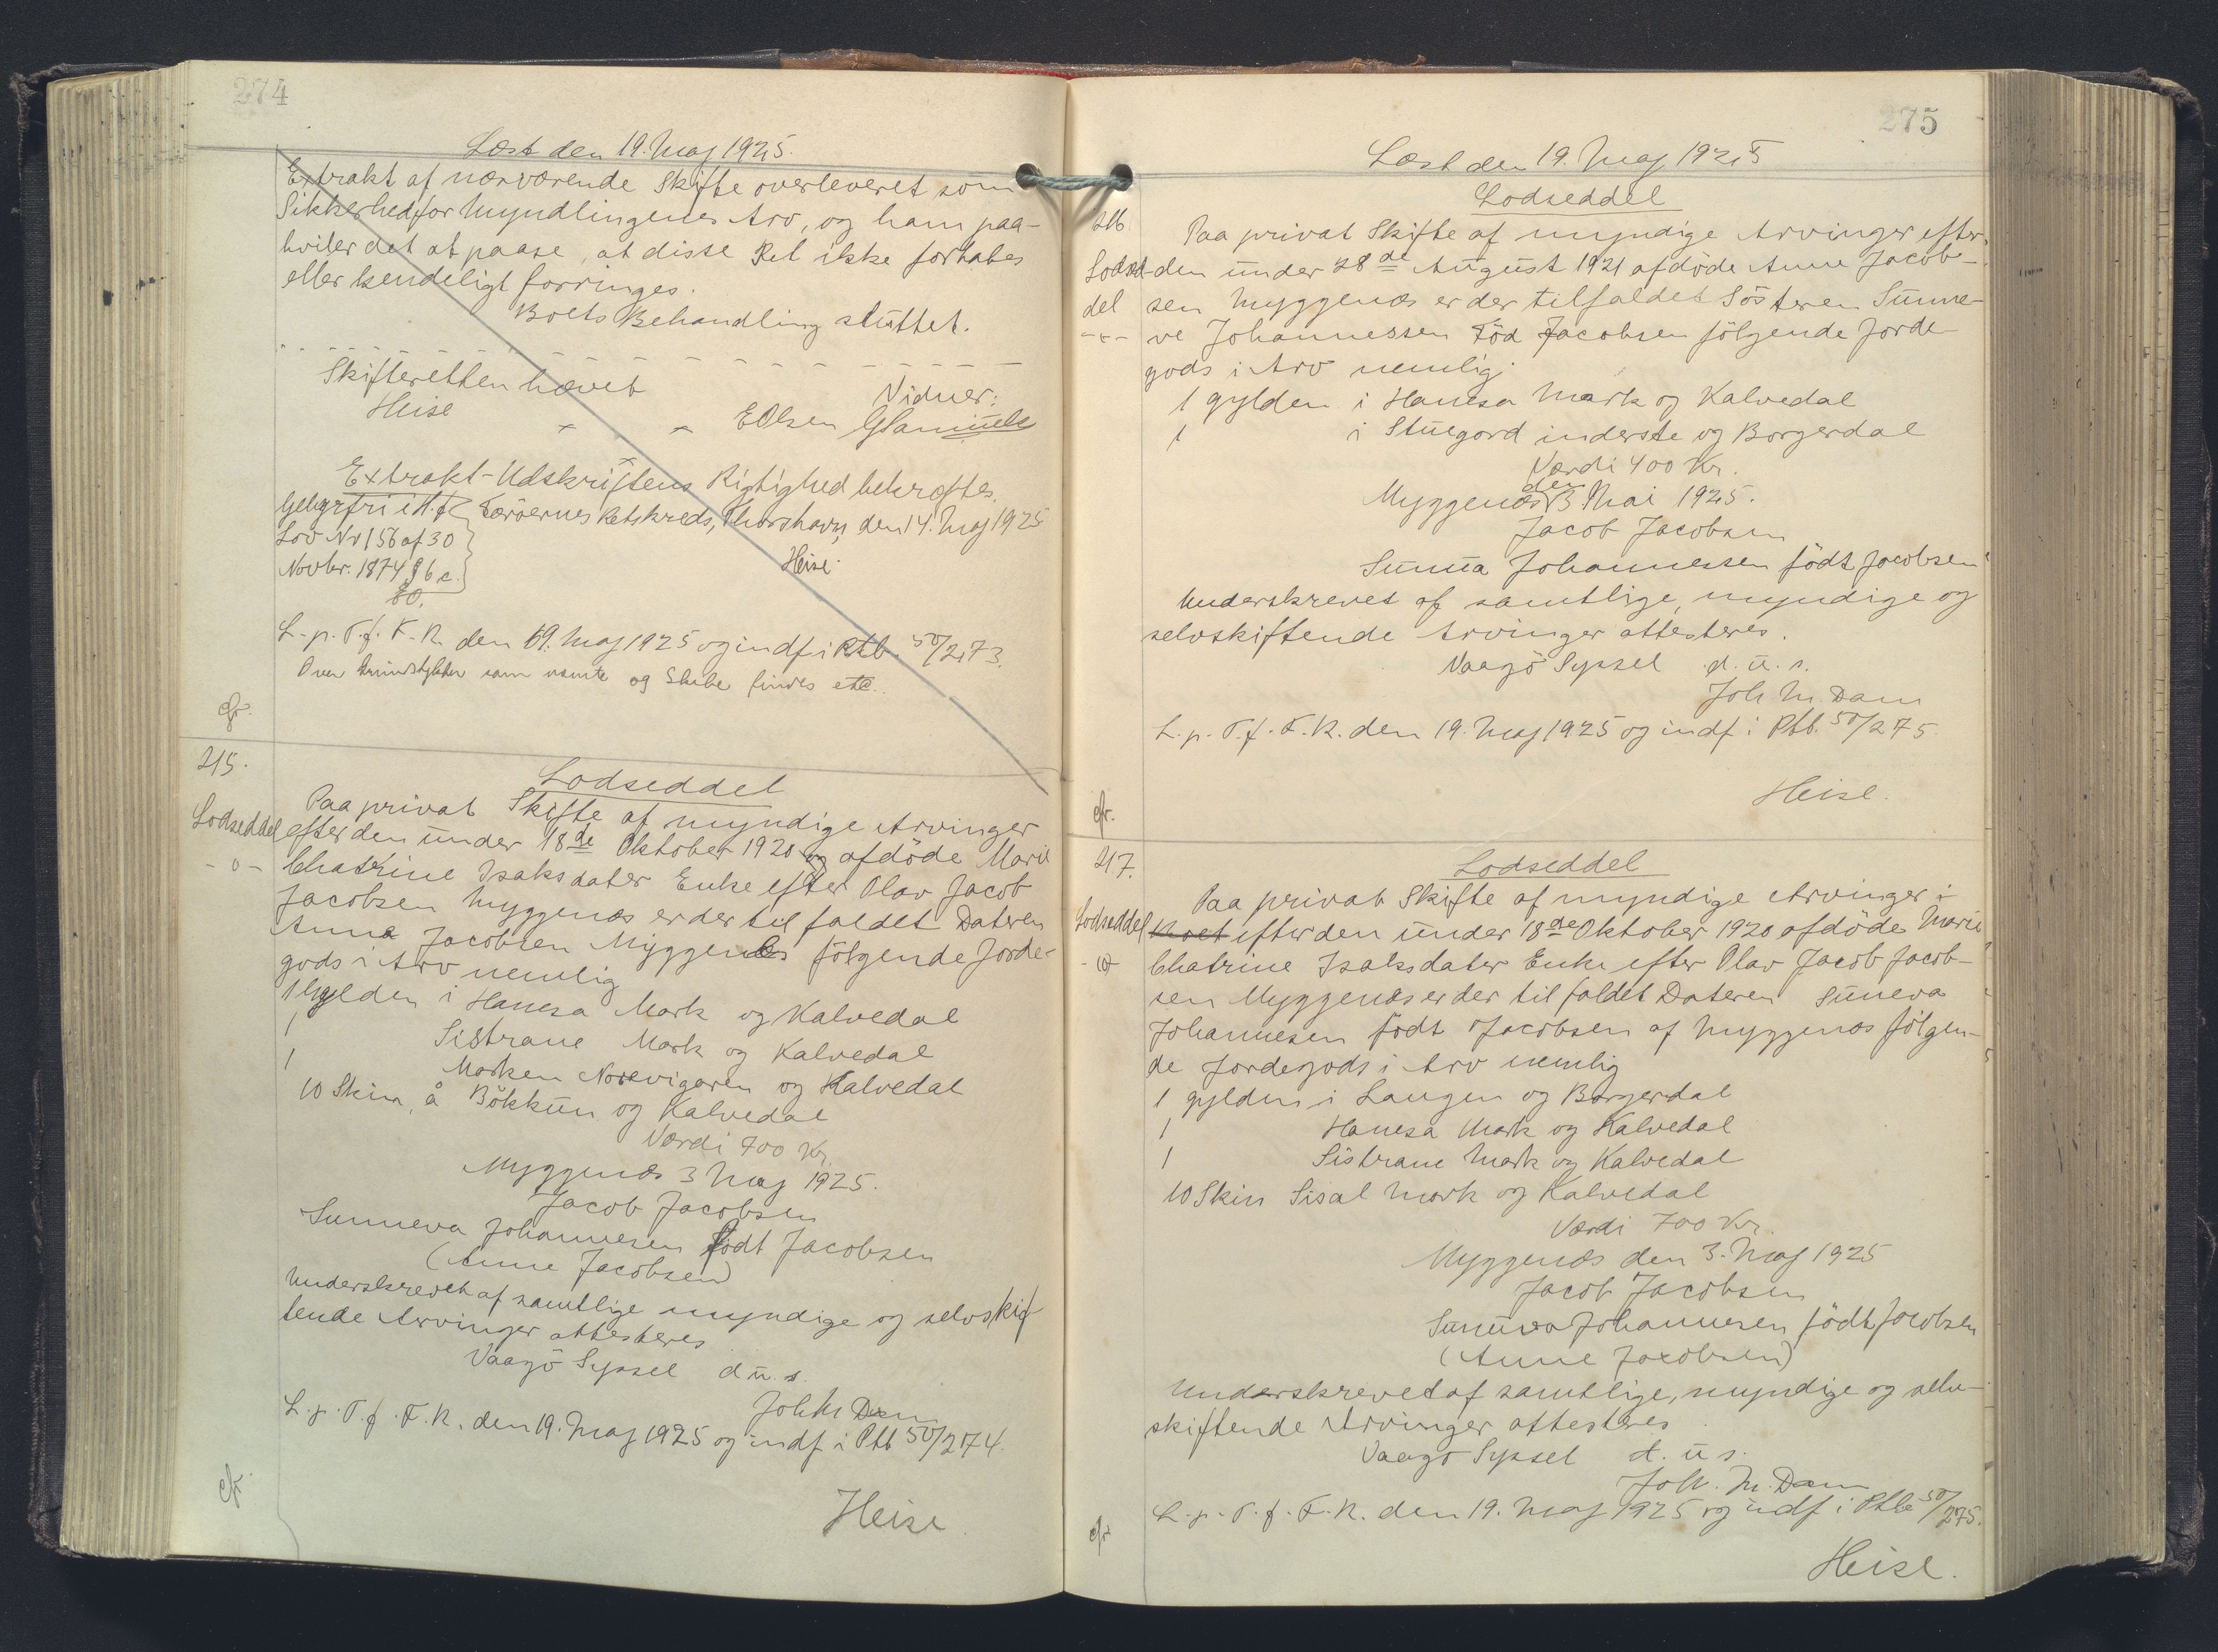 274
Læst den 19. Maj 1925.
Extrakt af nærværende Skifte overleveret som
Sikkerhed for Myndlingenes Arv, og ham paa-
hviler det at paase, at disse Ret ikke fortabes
eller kendeligt forringes.
Boets Behandling sluttet.
Skifteretten hævet
Heise
Vidner:
EOlsen GSamuels
Extrakt-Udskriftens Rigtighed bekræftes.
Gebyrfri i H. t.
Færøernes Retskreds, Thorshavn, den 14. Maj 1925
Lov Nr 156 af 30
Novbr. 1874 § 6 c.
Heise
L. p. T. f. F. R. den 19. Maj 1925 og indf i Ptb. 50/273.
og Skibe findes etc.
cfr.
215.
Lodseddel
Lodseddel
- 0 -
Paa privat Skifte af myndige Arvinger
efter den under 18de Oktober 1920 og afdöde Marie
Chatrine Isaksdater Enke efter Olav Jacob
Jacobsen Myggenæs er der til faldet Dateren
Anna Jacobsen Myggenæs fölgende Jorde-
gods i Arv nemlig
1 Gylden i Hanesa Mark og Kalvedal
1 Sistrane Mark og Kalvedal
1 Marken Norevigaren og Kalvedal
10 Skin, å Bökkun og Kalvedal
Værdi 700 Kr.
Myggenæs 3 Maj 1925.
Jacob Jacobsen
Sunneva Johannesen födt Jacobsen
(Anne Jacobsen)
Underskrevet af samtlige myndige og selvskif
tende Arvinger attesteres
Vaagö Syssel d. u. s.
Joh M Dam
L. p. T. f. F. R. den 19. Maj 1925 og indf i Ptb 50/274.
cfr.
Heise
275
Læst den 19. Maj 1925
Lodseddel
216.
Lodsed-
del
- 0 -
Paa privat Skifte af myndige Arvinger efter
den under 28de August 1921 afdöde Anne Jacob-
sen Myggenæs er der tilfaldet Sösteren Sunne-
ve Johannessen Föd Jacobsen fölgende Jorde
gods i Arv nemlig
1 gylden i Hanesa Mark og Kalvedal
1 i Stuegord inderste og Borgerdal
Værdi 400 Kr.
Myggenæs den 3 Mai 1925.
Jacob Jacobsen
Sunua Johannessen födt Jacobsen
Underskrevet af samtlige, myndige og
selvskiftende Arvinger attesteres.
Vaagö Syssel d. u. s.
Joh M. Dam
L. p. T. f. F. R. den 19. Maj 1925 og indf i Ptb. 50/275.
Heise.
cfr.
217.
Lodseddel
Lodseddel
- 0 -
Paa privat Skifte af myndige Arvinger i
Boet efter den under 18de Oktober 1920 afdöde Marie
Chatrine Isaksdater Enke efter Olav Jacob Jacob-
sen Myggenæs er der til faldet Dateren Suneva
Johannesen födt Jacobsen af Myggenæs fölgen-
de Jordegods i Arv nemlig
1 gylden i Laugen og Borgerdal
1 Hanesa Mark og Kalvedal
1 Sistrane Mark og Kalvedal
10 Skin Sisal Mark og Kalvedal
Værdi 700 Kr.
Myggenæs den 3. Maj 1925
Jacob Jacobsen
Suneva Johannesen födt Jacobsen
(Anne Jacobsen)
Underskrevet af samtlige, myndige og selv-
skiftende Arvinger attesteres
Vaagö Syssel d. u. s.
Joh. M. Dam
L. p. T. f. F. R. den 19. Maj 1925 og indf i Ptb 50/275.
cfr
Heise.